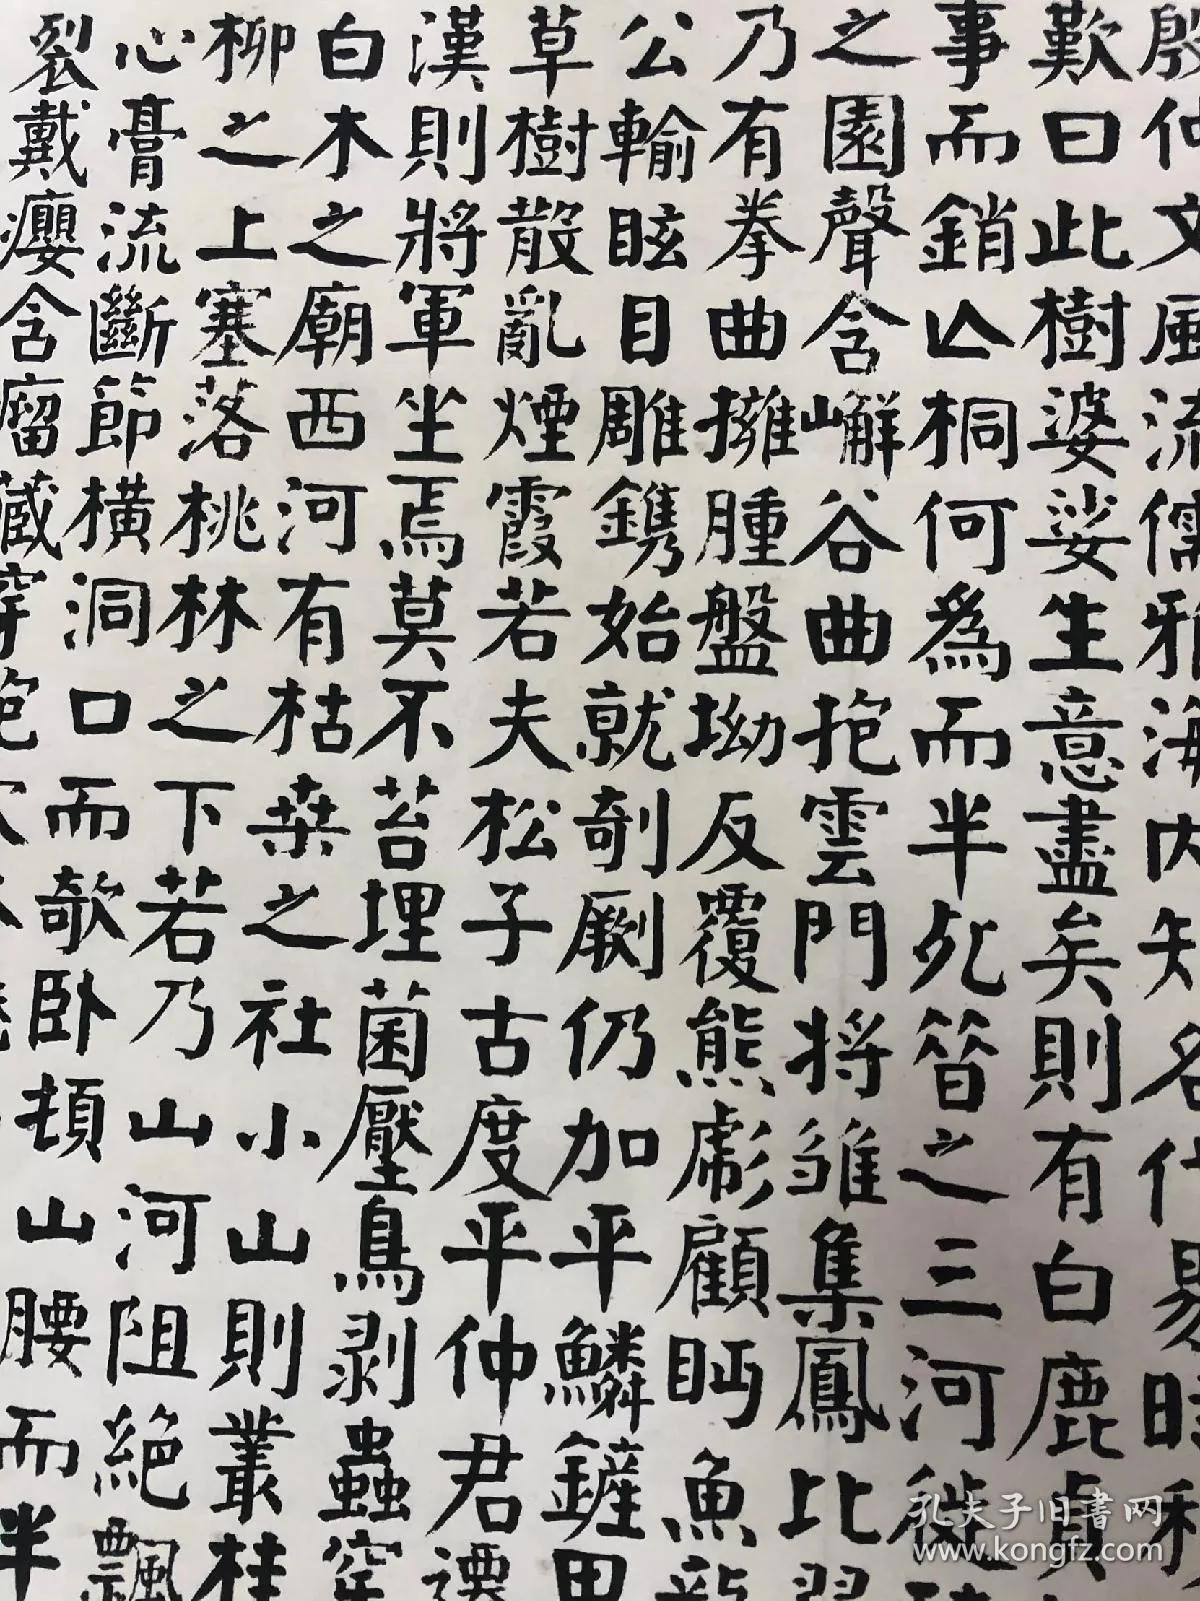 殷仲文風流儒雅海內知名代易時移
歎曰此樹婆娑生意盡矣則有白鹿貞
事而銷亾桐何為而半死昔之三河徙
之園聲含嶰谷曲抱雲門將雛集鳳比翼
乃有拳曲擁腫盤坳反覆熊彪顧眄魚龍
公輸眩目雕鐫始就剞劂仍加平鱗鏟甲
草樹散亂煙霞若夫松子古度平仲君遷
漢則將軍坐焉莫不苔埋菌壓鳥剥蟲穿
白木之廟西河有枯桑之社小山則叢桂
柳之上塞落桃林之下若乃山河阻絕飄
心膏流斷節橫洞口而欹卧頓山腰而半
裂戴癭含瘤藏穿抱
孔夫子旧書网
www.kongfz.com